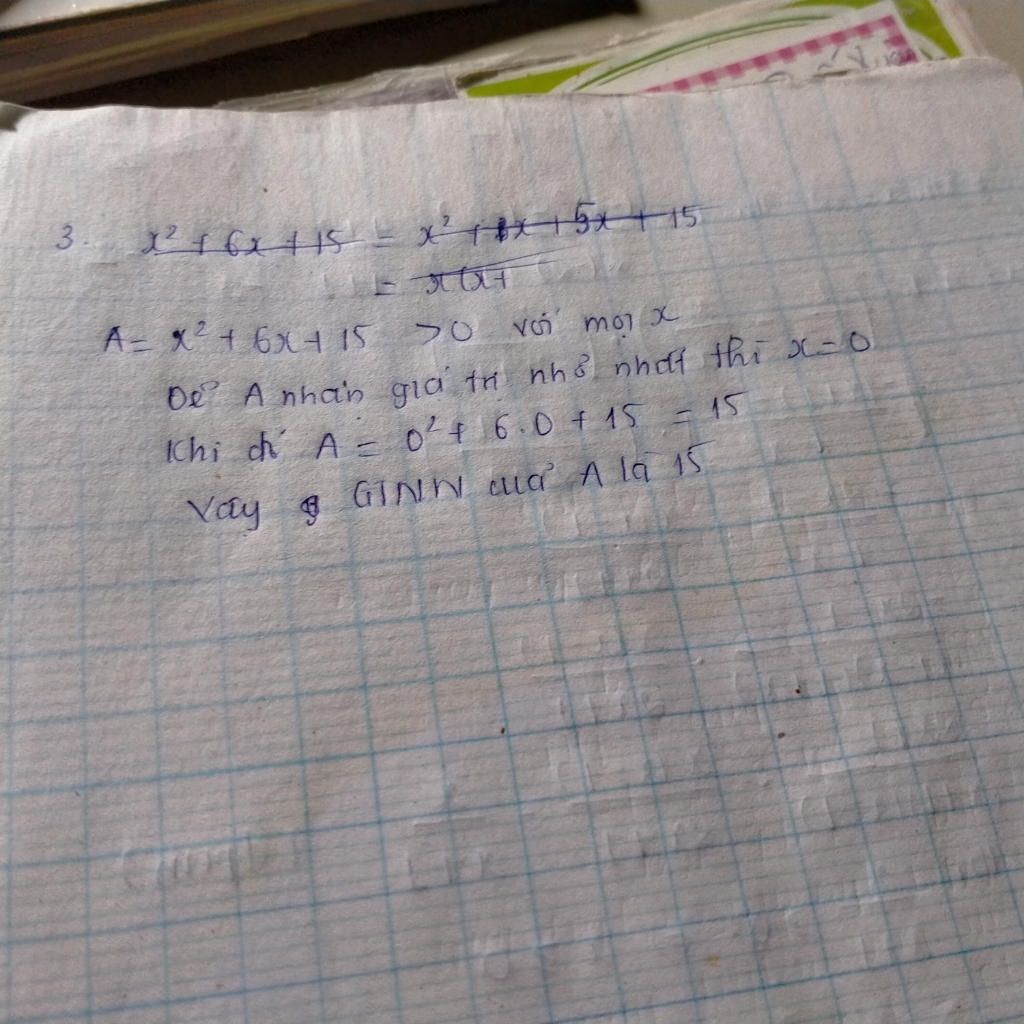 3. x² + 6x + 15 = x² + 1x + 5x + 15
= x(x+
A = x² + 6x + 15 > 0 với mọi x
Để A nhận giá trị nhỏ nhất thì x = 0
Khi đó A = 0² + 6.0 + 15 = 15
Vậy GTNN của A là 15